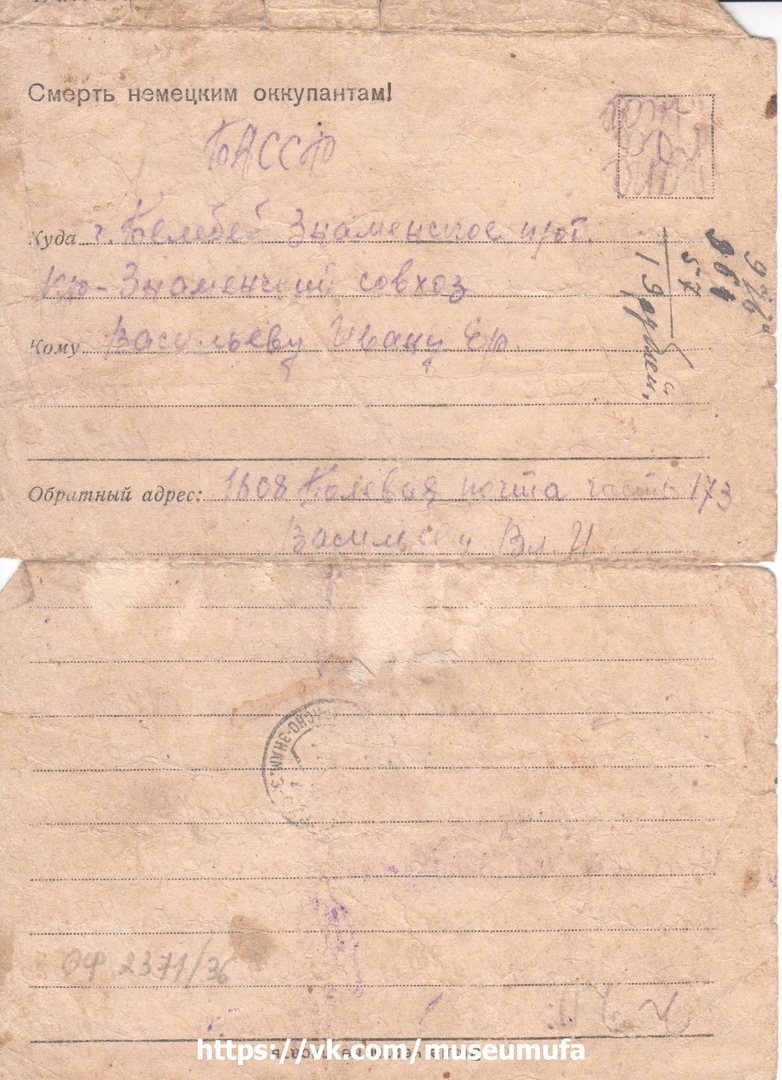 Смерть немецким оккупантам!
БАССР
Куда г. Белебей Знаменское п/от.
Кр-Знаменский совхоз
Кому Васильеву Ивану Ер.
Обратный адрес: 1608 Полевая почта часть 173
Васильев Вл И
СНО-ЗНАМ.
ОФ 2371/36
https://vk.com/museumufa